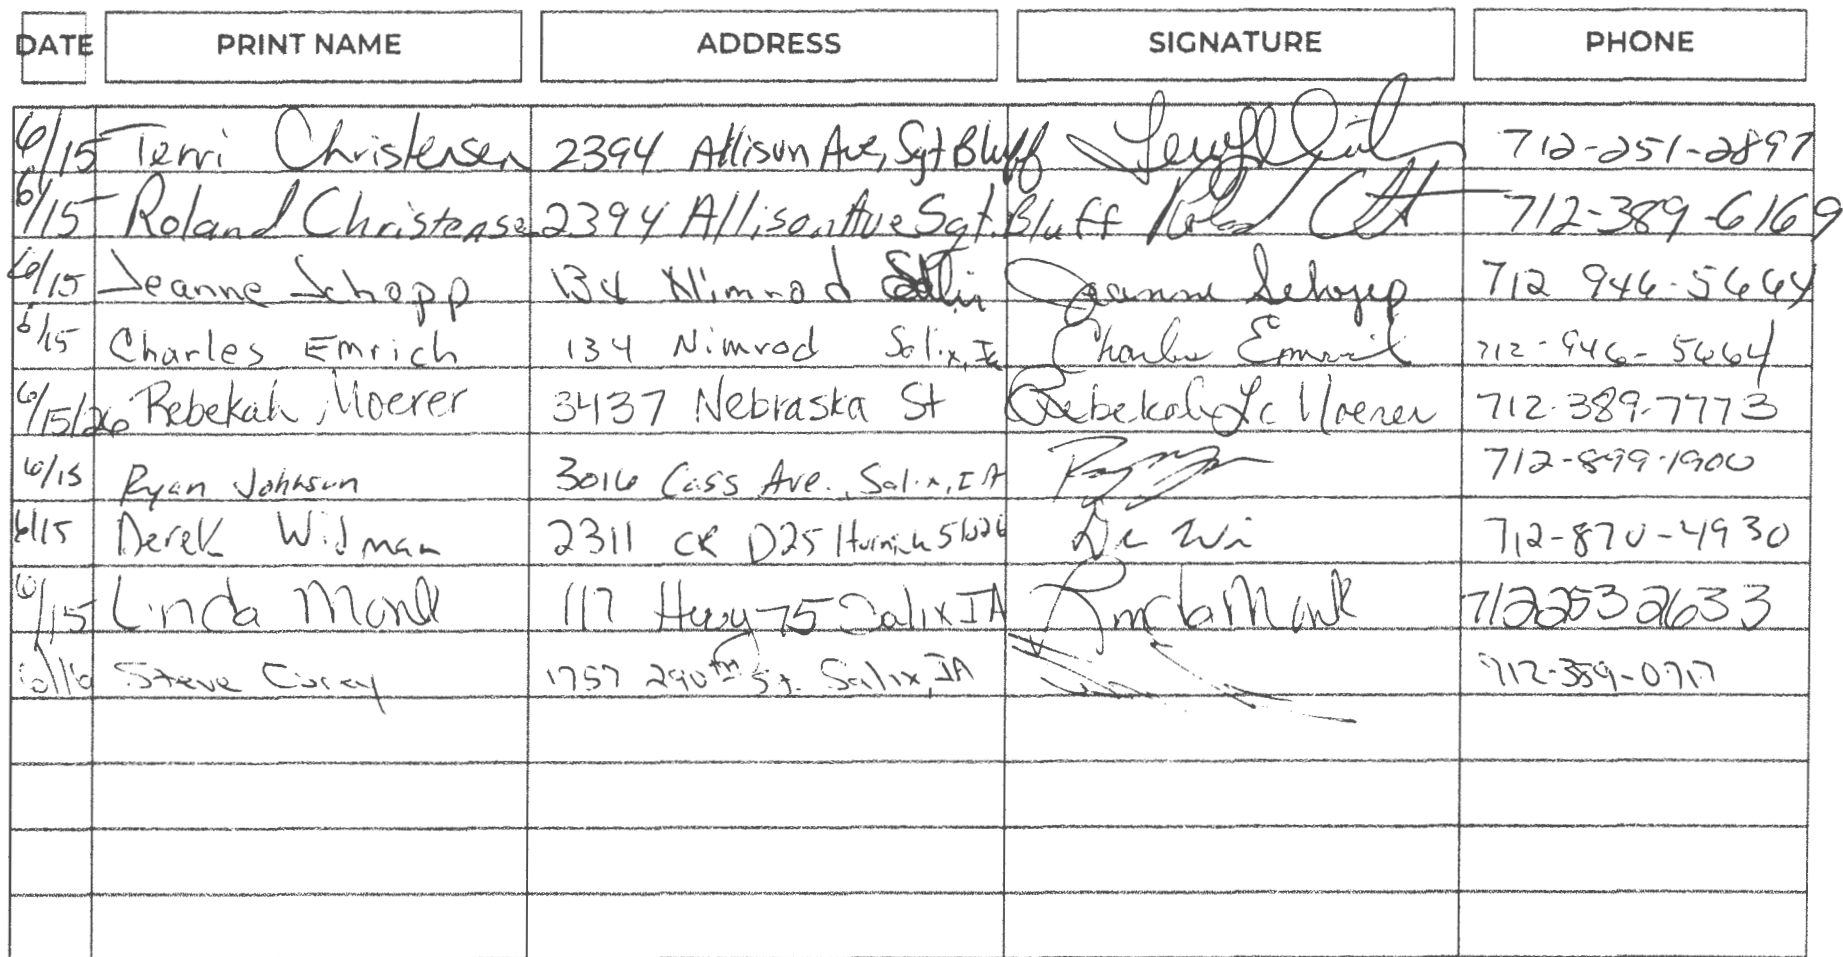 DATE PRINT NAME ADDRESS SIGNATURE PHONE
6/15 Terri Christensen 2394 Allison Ave, Sgt Bluff 712-251-2897
6/15 Roland Christense 2394 Allison Ave Sgt. Bluff 712-389-6169
6/15 Jeanne Schopp 134 Nimrod Salix Jeanne Schopp 712 946-5664
6/15 Charles Emrich 134 Nimrod Salix, Ia Charles Emrich 712-946-5664
6/15/26 Rebekah Moerer 3437 Nebraska St Rebekah Moerer 712-389-7773
6/15 Ryan Johnson 3016 Cass Ave., Salix, IA 712-899-1900
6/15 Derek Widman 2311 CR D25 712-870-4930
6/15 Linda Monk 117 Hwy 75 Salix IA Linda Monk 7122532633
6/16 Steve Corey 1757 290th St. Salix, IA 712-359-0717